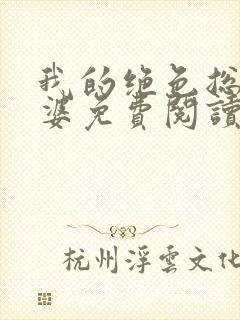 我的绝色总
婆免費閱讀
杭州浮雲文化